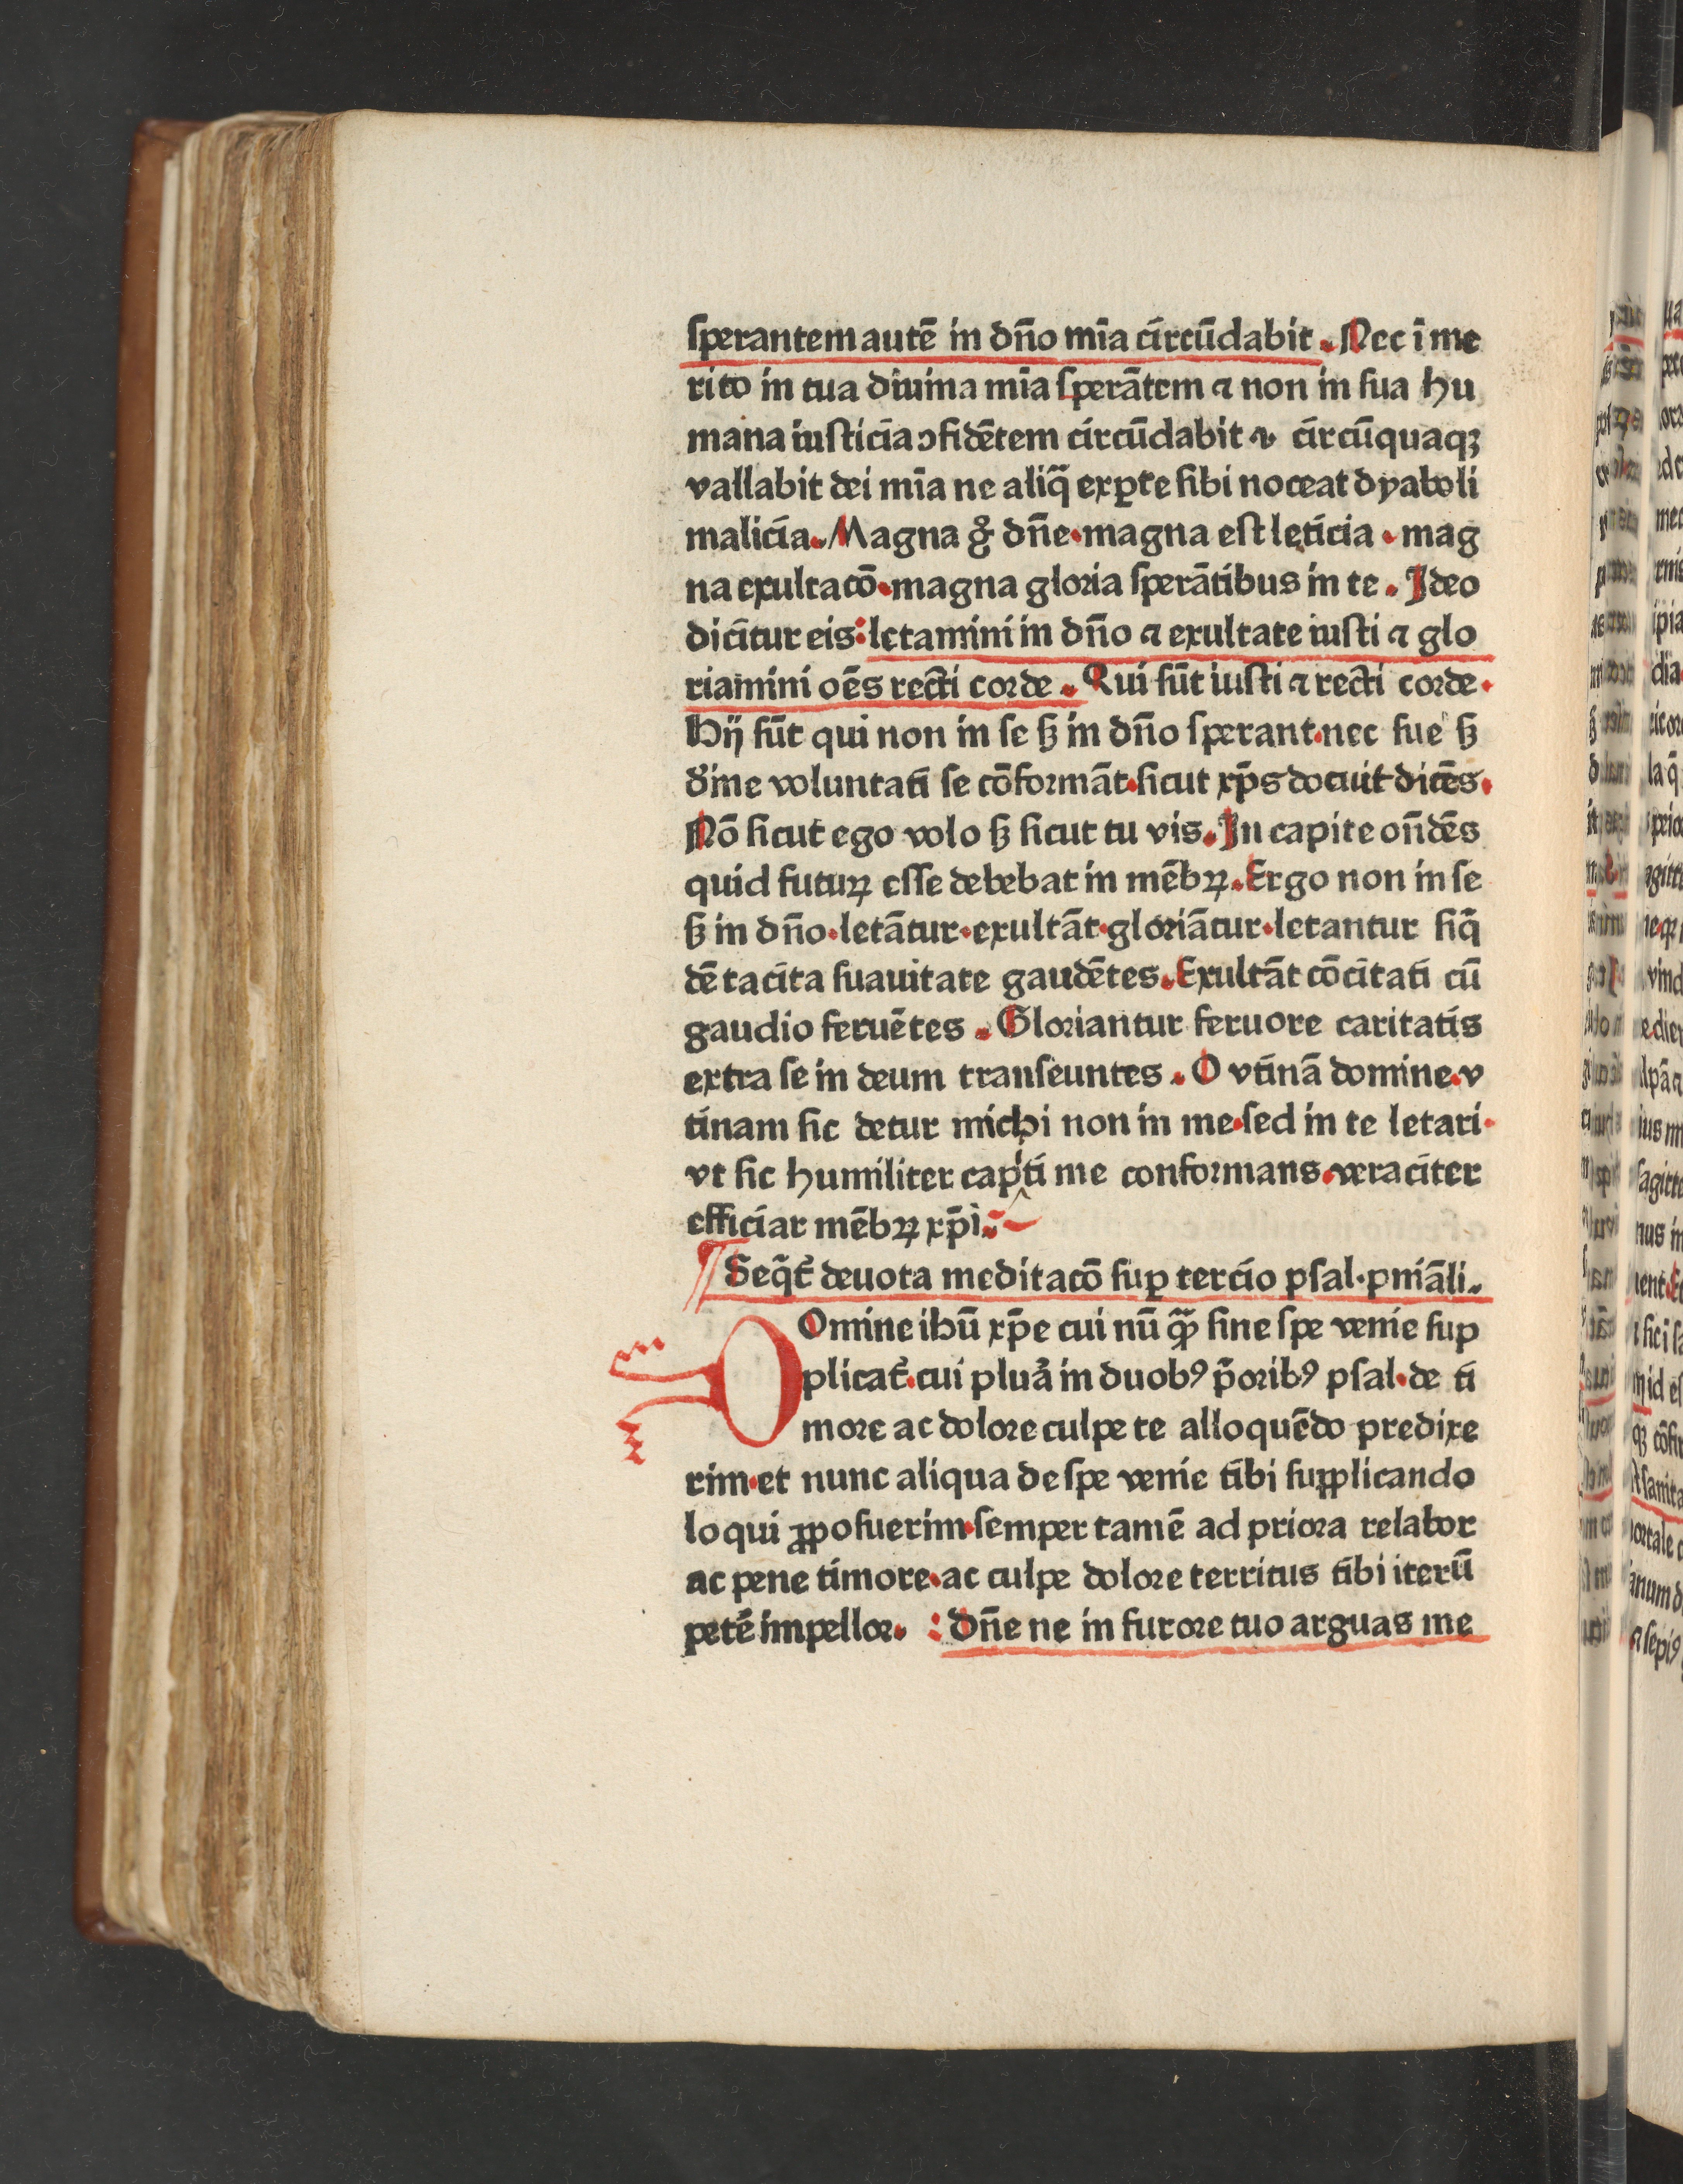 sperantem autē in dn̄o mīa circūdabit. Nec ī me
rito in tua diuina mīa sperātem ⁊ non in sua hu
mana iusticia ꝯfidētem circūdabit ⁊ circūquaqꝫ
vallabit dei mīa ne aliq̄ exꝑte sibi noceat dyaboli
malicia. Magna gͦ dn̄e·magna est leticia·mag
na exultacō·magna gloria sperātibus in te. Ideo
dicitur eis: letamini in dn̄o ⁊ exultate iusti ⁊ glo
riamini oēs recti corde. Qui sūt iusti ⁊ recti corde·
Hij sūt qui non in se sꝫ in dn̄o sperant·nec sue sꝫ
diͥne voluntati se cōformāt·sicut xp̄s docuit dicēs·
Nō sicut ego volo sꝫ sicut tu vis. In capite on̄dēs
quid futuꝝ esse debebat in mēbꝝ. Ergo non in se
sꝫ in dn̄o·letātur·exultāt·gloriātur·letantur siq̄
dē tacita suauitate gaudētes. Exultāt cōcitati cū
gaudio feruētes. Gloriantur feruore caritatis
extra se in deum transeuntes. O vtinā domine·v
tinam sic detur michi non in me·sed in te letari·
vt sic humiliter capͥti me conformans·veraciter
efficiar mēbꝝ xp̄i:~
¶ Seq̄t᷑ deuota meditacō suꝑ tercio psal·pn̄iāli.
DOmine ihū xp̄e cui nū qᷓꝫ sine spe venie sup
plicat᷑·cui pluͣa in duobꝰ p̄oribꝰ psal·de ti
more ac dolore culpe te alloquēdo predixe
rim·et nunc aliqua de spe venie tibi supplicando
loqui ꝓposuerim·semper tamē ad priora relabor
ac pene timore·ac culpe dolore territus tibi iterū
petē impellor. : Dn̄e ne in furore tuo arguas me